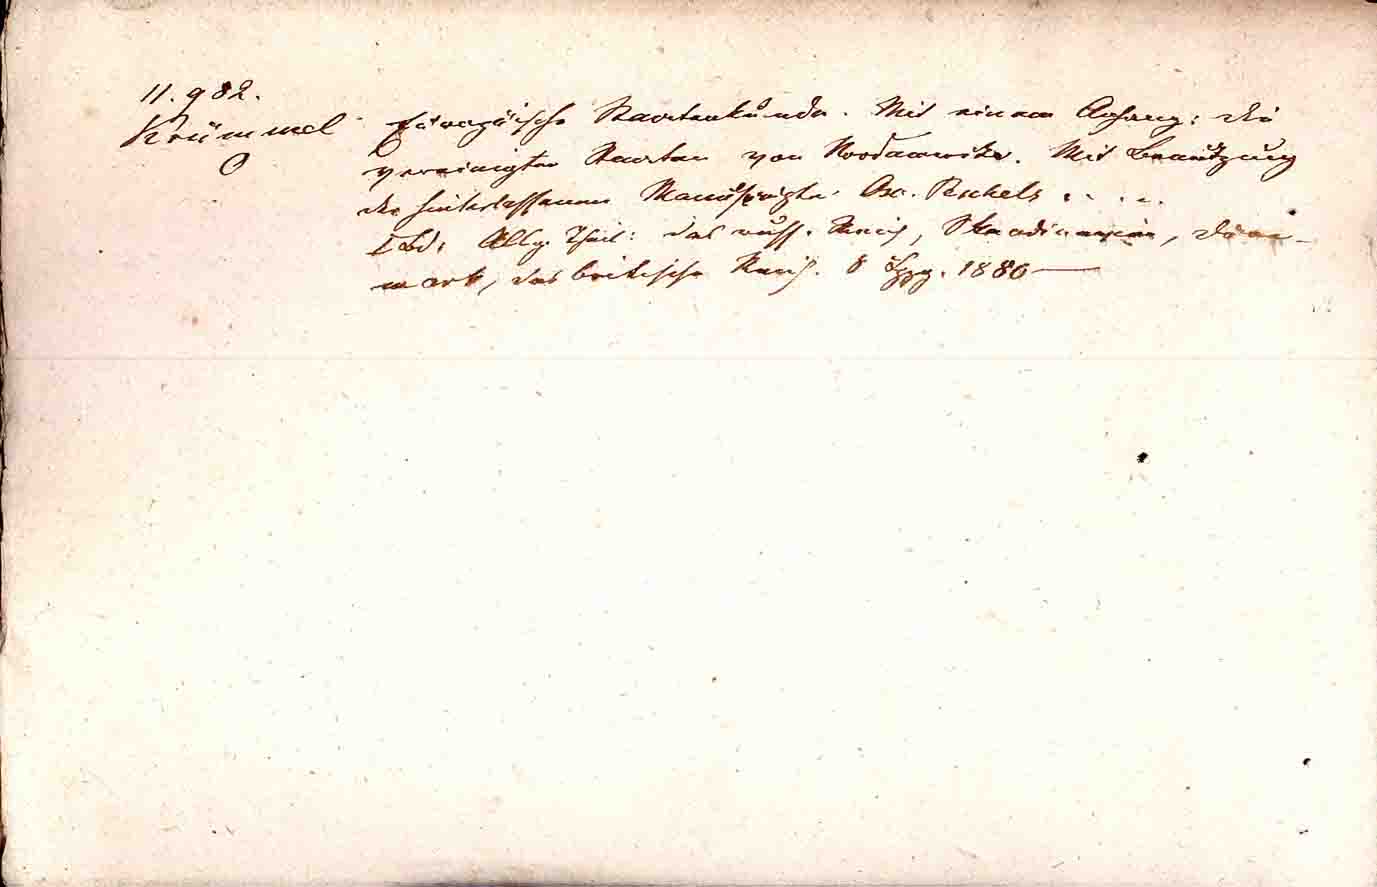 11.982.
Krümmel
O
Europäische Staatenkunde. Mit einem Anhang: die
vereinigten Staaten von Nordamerika. Mit Benützung
der hinterlassenen Manuscripte Osc. Peschels . . . .
I Bd. Allg. Theil: das russ. Reich, Skandinavien, Däne-
mark, das britische Reich. 8 Lpzg. 1880 —